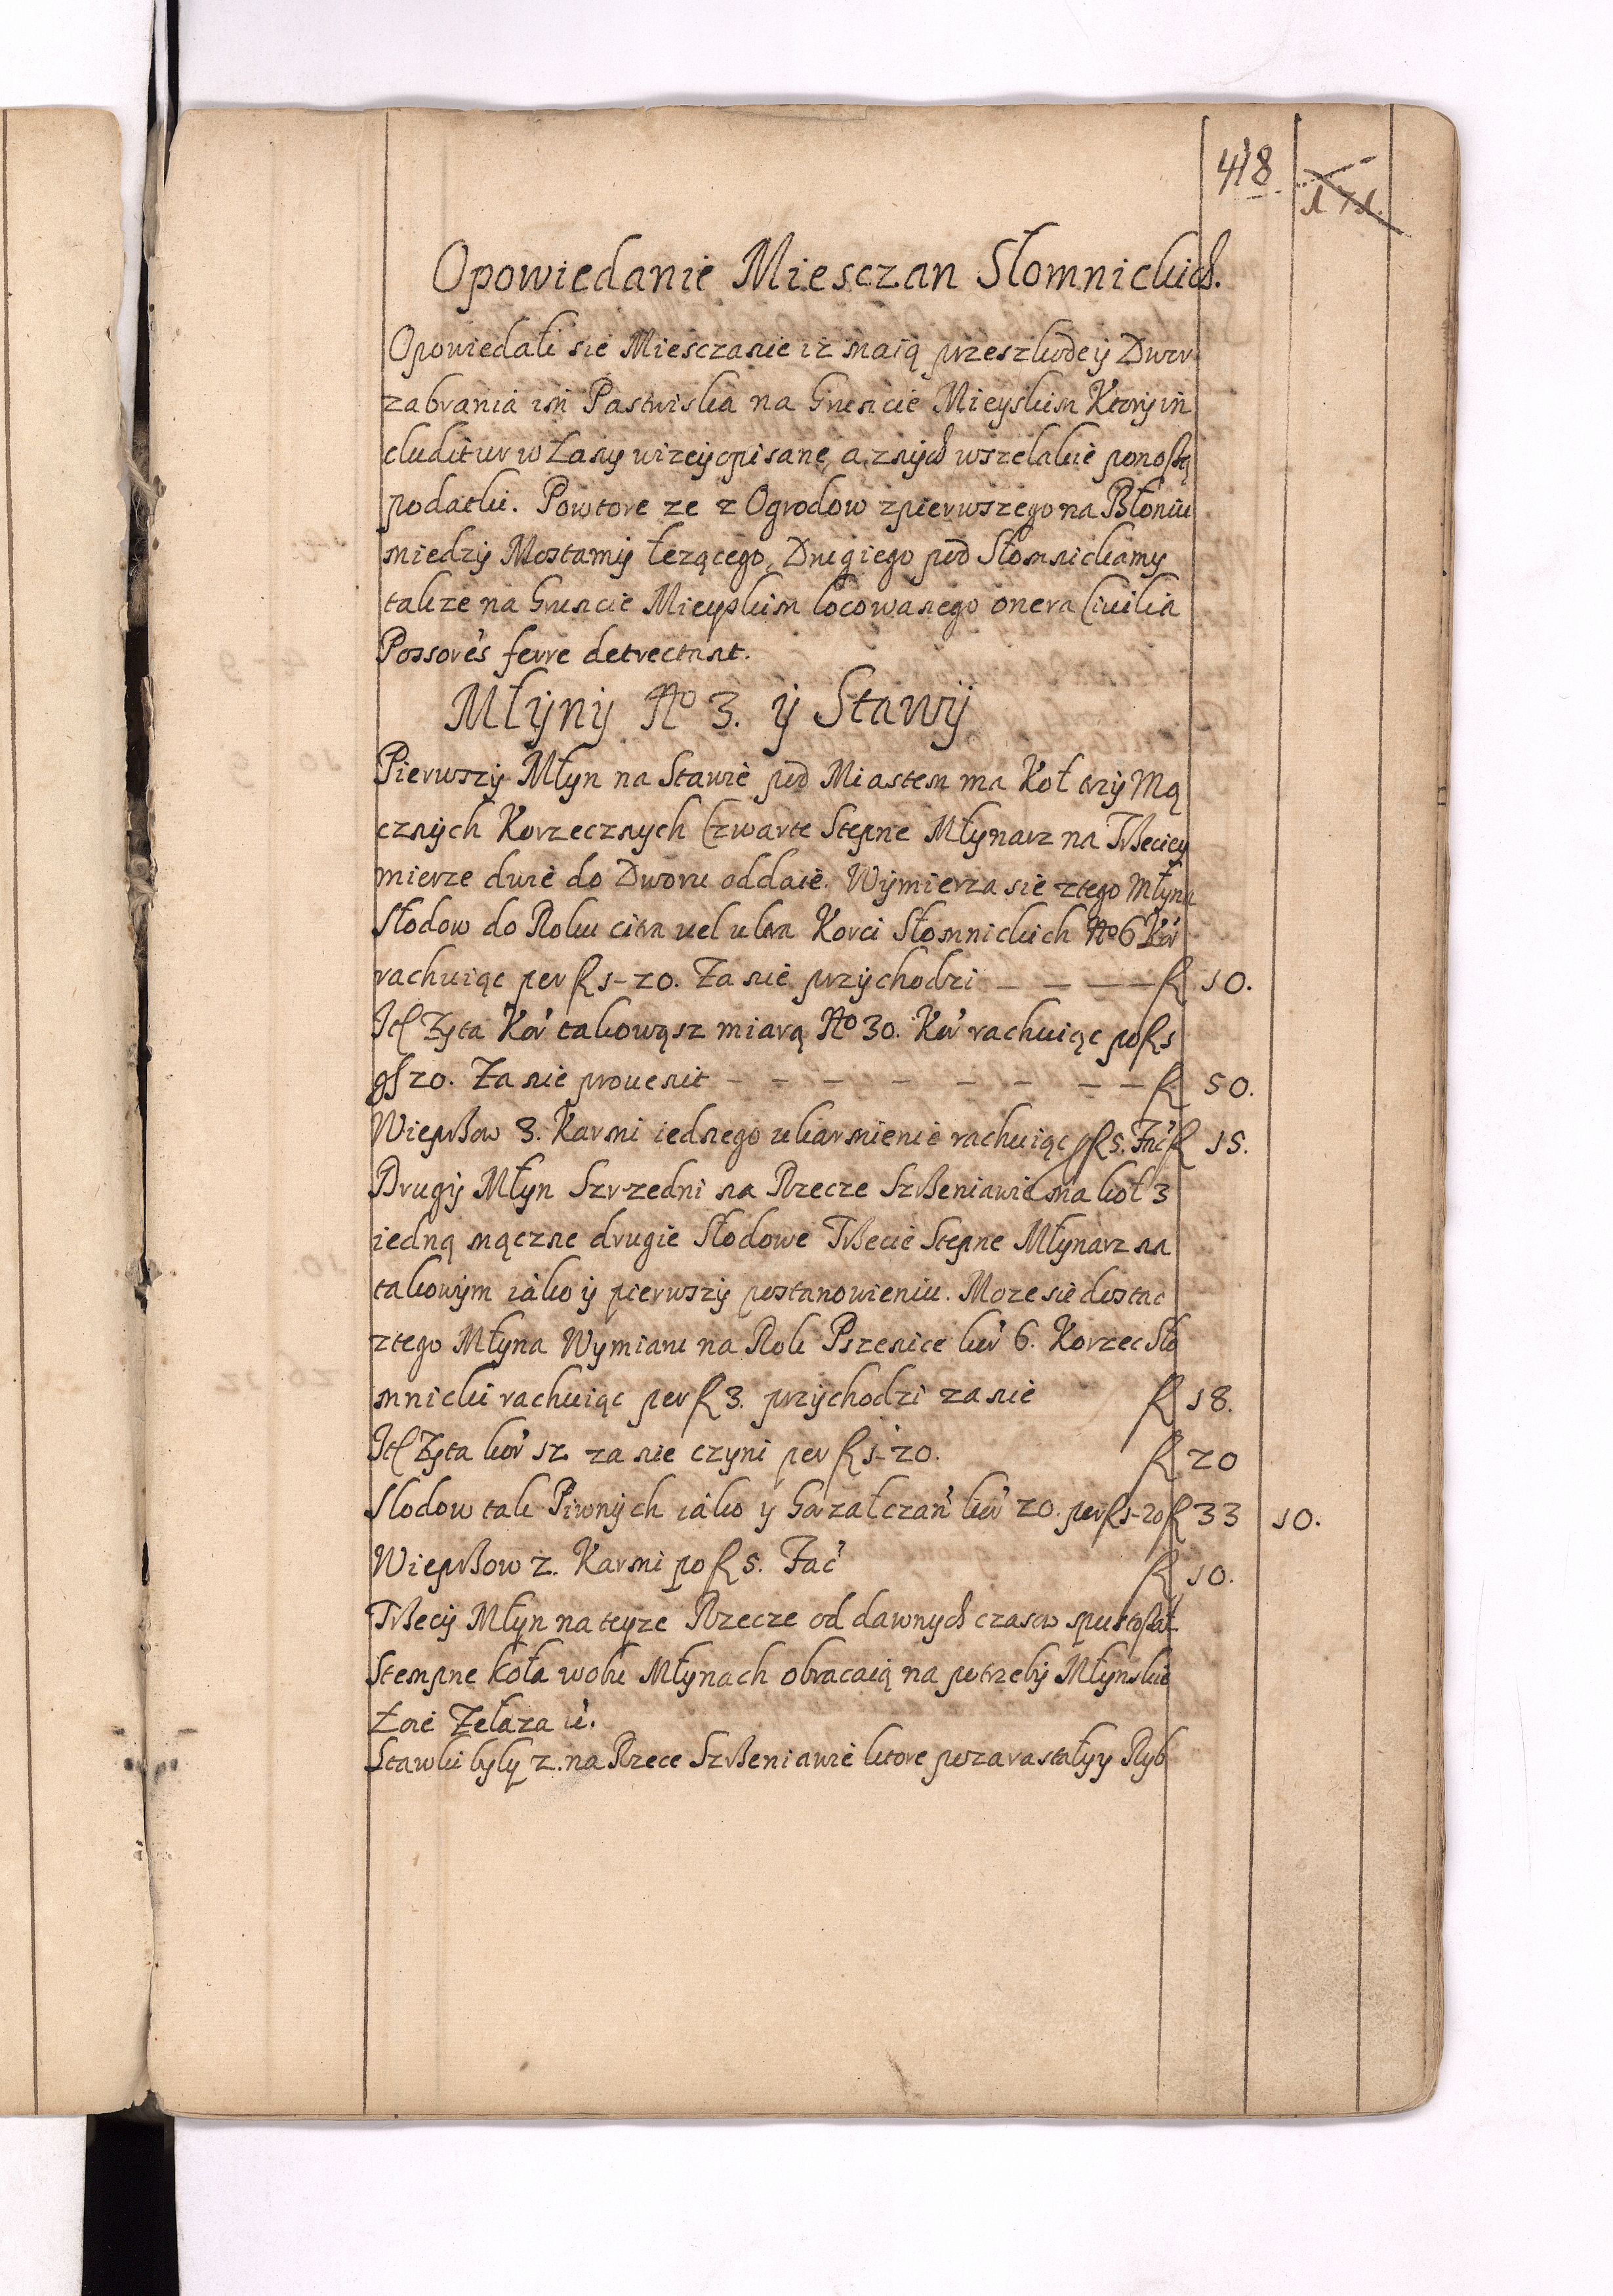 418
171.
Opowiedanie Miesczan Słomnickich.
Opowiedali sie Miesczanie iz maią przeszkodę y Dwru
zabrania im Pastwiska na Gruncie Mieyskim Ktory in
cluditur w Łany wizey opisane, a znych wszelakie ponoszą
podatki. Powtore ze z Ogrodow zpierwszego na Błoniu
miedzy Mostamy lezącego, Drugiego pod Słomnickamy
takze na Gruncie Mieyskim locowanego onera Civilia
Possores ferre detrectant.
Młyny No 3. y Stawy
Pierwszy Młyn na Stawie pod Miastem ma Koł trzy Mą
cznych Korzecznych Czwarte Stepne Młynarz na Trzeciey
mierze dwie do Dworu oddaie. Wymierza sie ztego Młyna
Słodow do Roku citra vel ultra Korci Słomnickich No 6 Kor
rachuiąc per fl 1-20. Za nie przychodzi – – – – fl 10.
It Zyta Kor takowąsz miarą No 30. Kor rachuiąc po fl 1
gs 20. Za nie prouenit – – – – – – – – fl 50.
Wieprzow 3. Karmi iednego ukarmienie rachuiąc p fl 5. Fac fl 15.
Drugy Młyn Szrzedni na Rzecze Szrzeniawie ma koł 3
iedną mączne drugie Słodowe Trzecie Stepne Młynarz na
takowym iáko y pierwszy postanowieniu. Moze sie dostac
ztego Młyna Wymiaru na Rok Pszenice kor 6. Korzec Sło
mnicki rachuiąc per fl 3. przychodzi za nie fl 18.
It Zyta kor 12 za nie czyni per fl 1-20. fl 20
Slodow tak Piwnych iáko y Gorzałczan kor 20. per fl 1-20 fl 33 10.
Wieprzow 2. Karmi po fl 5. Fac fl 10.
Trzecy Młyn na teyze Rzecze od dawnych czasow spustoszał
Stempne koła wobu Młynach obracaią na potrzeby Młynskie
Łoie Zelaza
Stawki były 2. na Rzece Szrzeniawie ktore pozarastały y Ryb